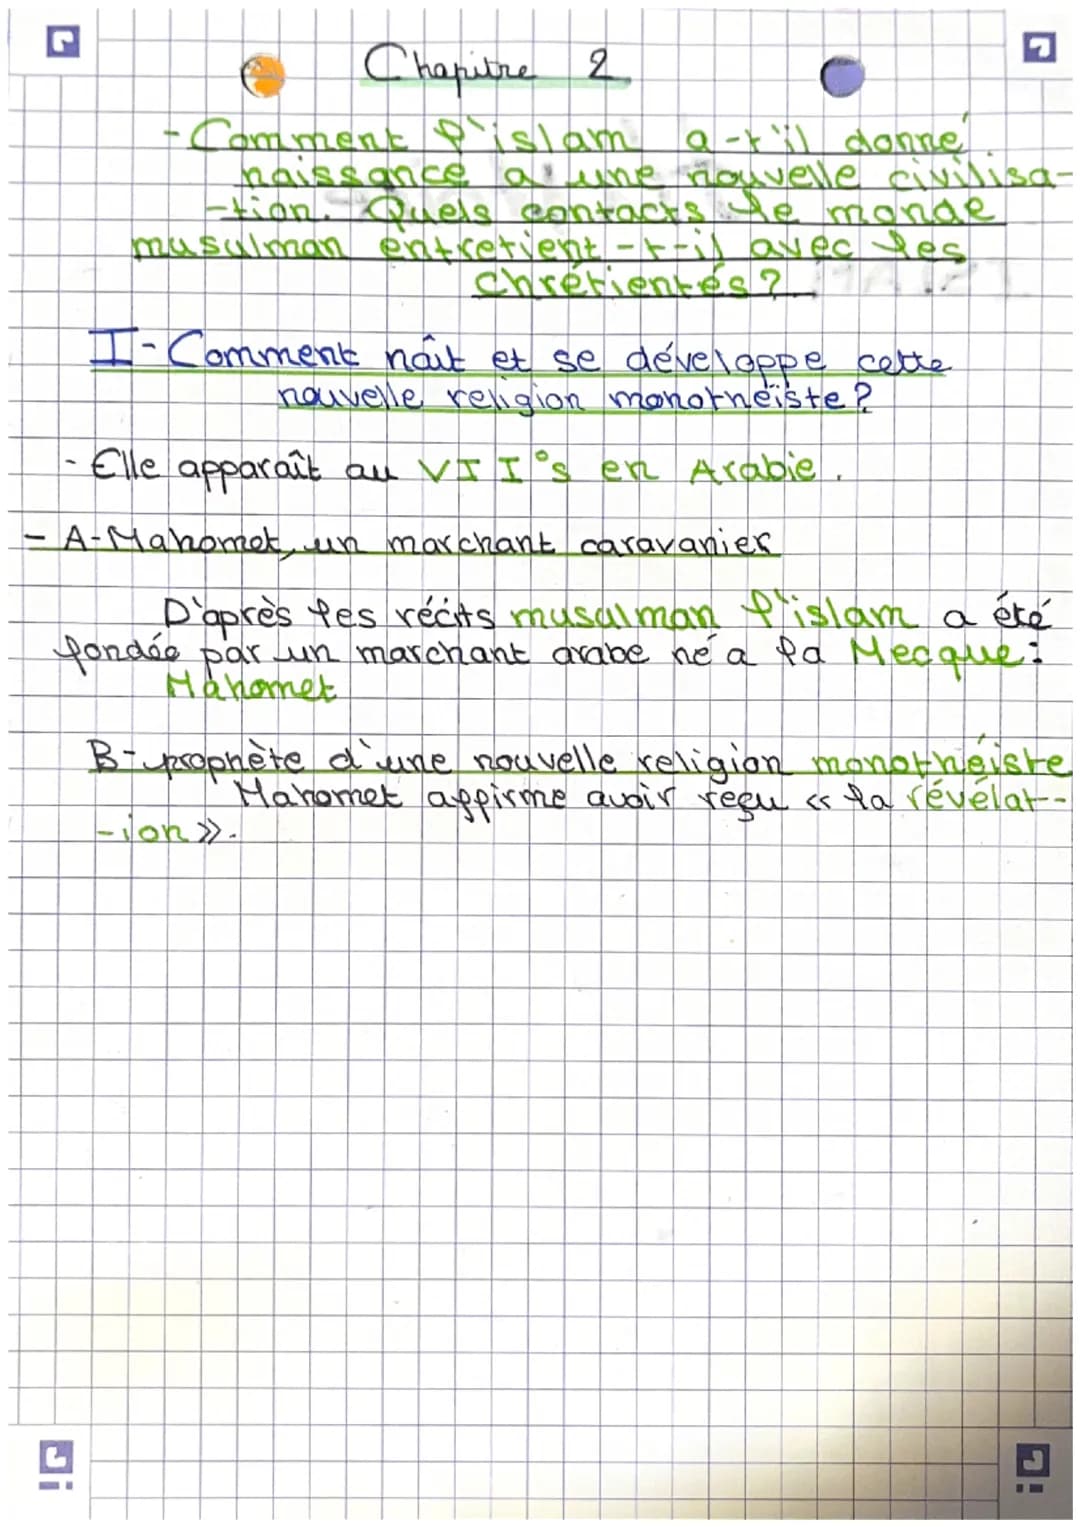 Chapitre 2
- Comment l'islam a-t'il donné
naissance a une nouvelle civilisa-
-tion. Quels contacts le monde
musulman entretient-t-il avec les
chrétientés?
I- Comment naît et se développe cette
nouvelle religion monothéiste?
- Elle apparaît au VII°s en Arabie.
- A-Mahomet, un marchant caravanier
D'après les récits musulman l'islam a été
fondée par un marchant arabe né a la Mecque:
Mahomet
B- prophète d'une nouvelle religion monothéiste
Mahomet affirme avoir reçu « la révélat-
-ion ».